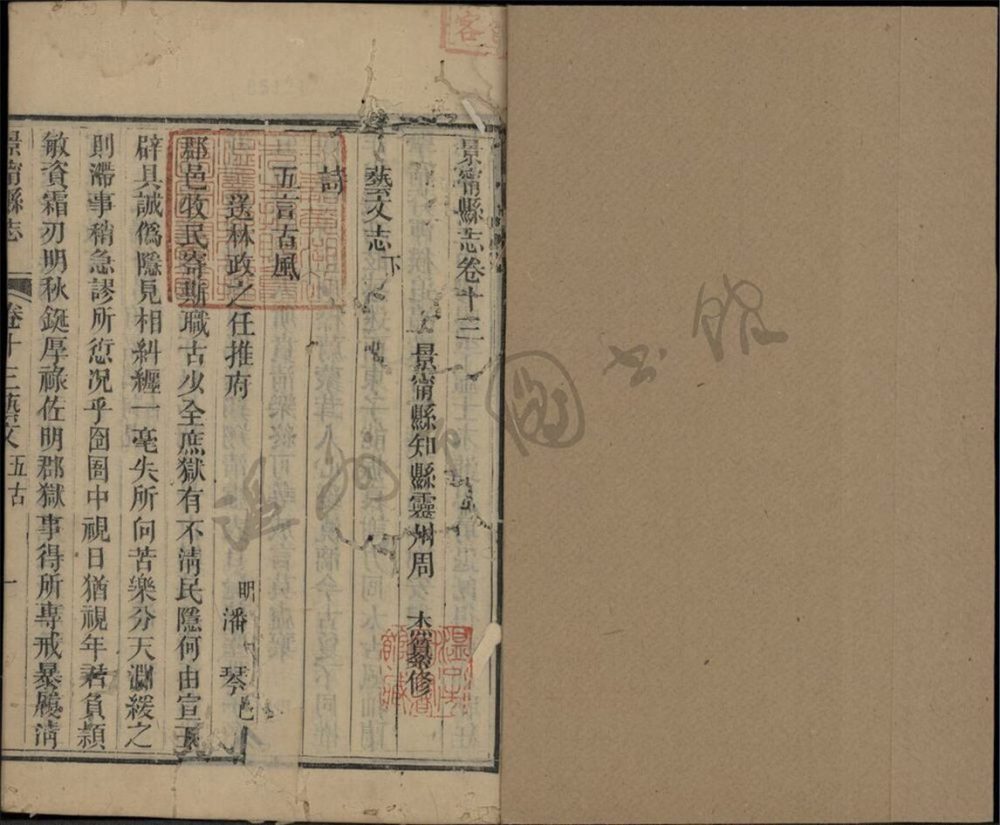 景甯縣志卷十三
景甯縣知縣靈州周　杰纂修
藝文志下
詩
五言古風
送林政之任推府
明潘　琴邑人
郡邑牧民寄斯職古少全庶獄有不淸民隱何由宣
辟具誠僞隱見相糾纒一毫失所向苦樂分天淵緩之
則滯事稍急謬所愆况乎囹圄中視日猶視年君負頴
敏資霜刃明秋鋋厚祿佐明郡獄事得所専戒暴履淸
景甯縣志
卷十三藝文
五古
一
溫州
圖書館